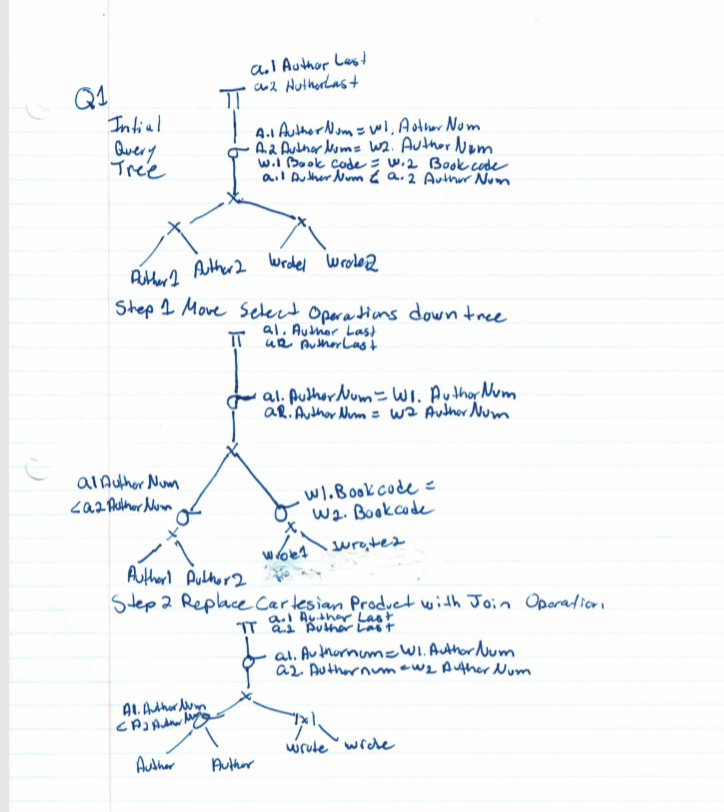 a.1 Author Last
Q1
π a.2 AuthorLast
Intial
Query
Tree
A.1 Author Num = W1. Author Num
σ A.2 Author Num = W2. Author Num
W.1 Book code = W.2 Book code
a.1 Author Num < a.2 Author Num
x
x x
Author1 Author2 Wrote1 Wrote2
Step 1 Move Select Operations down tree
π a1. Author Last
a2. AuthorLast
σ a1. Author Num = W1. Author Num
a2. Author Num = W2 Author Num
x
a1 Author Num
< a2 Author Num σ
σ W1. Bookcode =
W2. Bookcode
x x
Wrote1 Wrote2
Author1 Author2
Step 2 Replace Cartesian Product with Join Operation.
π a.1 Author Last
a.2 Author Last
σ a1. Authornum = W1. Author Num
a2. Authornum = W2 Author Num
x
A1. Author Num
< A2 Author Num σ
|x|
Wrote Wrote
Author Author